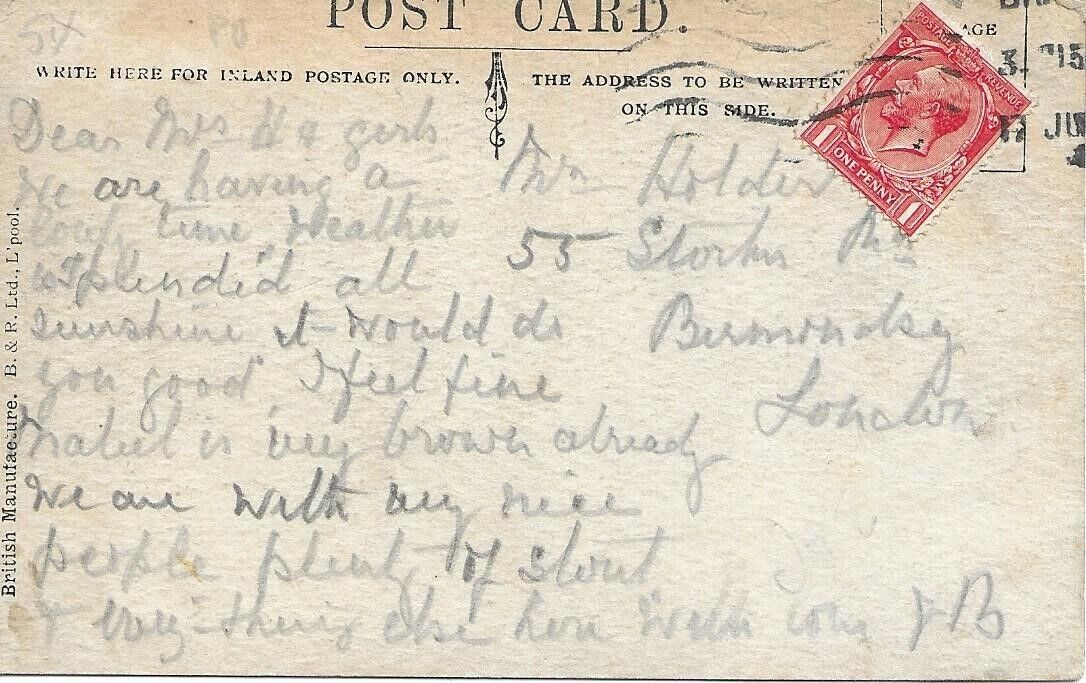 POST CARD.
AGE
WRITE HERE FOR INLAND POSTAGE ONLY.
THE ADDRESS TO BE WRITTEN
ON THIS SIDE.
POSTAGE REVENUE
ONE PENNY
1 1
3. 15
17 JU
British Manufacture. B. & R. Ltd., L'pool.
Dear Mrs H & girls
We are having a
time Weather
splendid all
sunshine it would do
you good I feel fine
Mabel is very brown already
We are with very nice
people plenty of stout
& every thing else here with J B
Mrs Holder
55 Storks Rd
Bermondsey
London